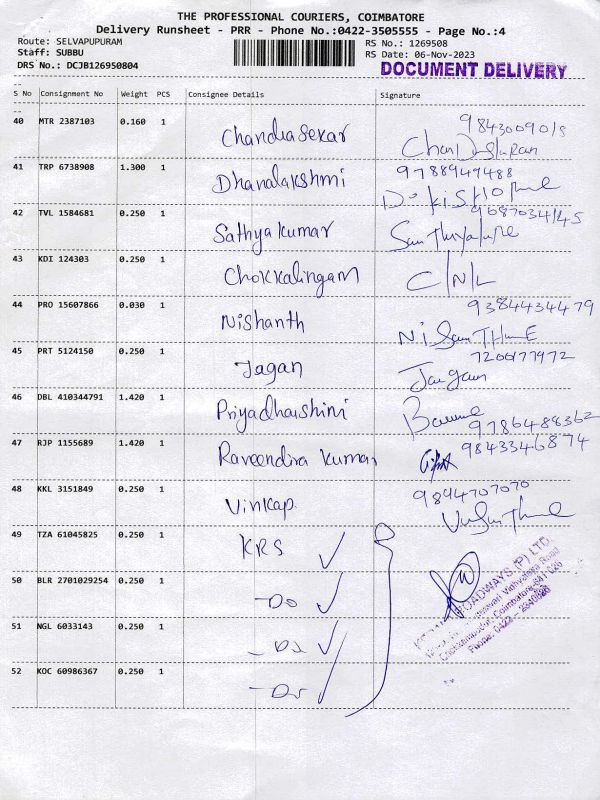 THE PROFESSIONAL COURIERS, COIMBATORE
Delivery Runsheet - PRR - Phone No.:0422-3505555 - Page No.:4
Route: SELVAPUPURAM RS No.: 1269508
Staff: SUBBU RS Date: 06-Nov-2023
DRS No.: DCJB126950804 DOCUMENT DELIVERY
S No Consignment No Weight PCS Consignee Details Signature
40 MTR 2387103 0.160 1 Chandrasekar
41 TRP 6738908 1.300 1 Dhanalakshmi 9788949488
42 TVL 1584681 0.250 1 Sathyakumar
43 KDI 124303 0.250 1 Chokkalingam C/N/L
44 PRO 15607866 0.030 1 Nishanth 9384434479
45 PRT 5124150 0.250 1 Jagan 7200177972
46 DBL 410344791 1.420 1 Priyadharshini 9786488362
47 RJP 1155689 1.420 1 Raveendira kumar 9843346874
48 KKL 3151849 0.250 1 Vinkap 9894707070
49 TZA 61045825 0.250 1 KRS
50 BLR 2701029254 0.250 1 -Do
51 NGL 6033143 0.250 1
52 KOC 60986367 0.250 1
ROADWAYS (P) LTD.